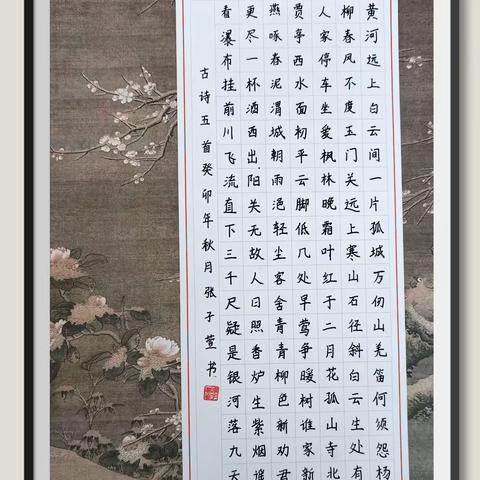 黄河远上白云间一片孤城万仞山羌笛何须怨杨
柳春风不度玉门关远上寒山石径斜白云生处有
人家停车坐爱枫林晚霜叶红于二月花孤山寺北
贾亭西水面初平云脚低几处早莺争暖树谁家新
燕啄春泥渭城朝雨浥轻尘客舍青青柳色新劝君
更尽一杯酒西出阳关无故人日照香炉生紫烟遥
看瀑布挂前川飞流直下三千尺疑是银河落九天
古诗五首癸卯年秋月张子萱书